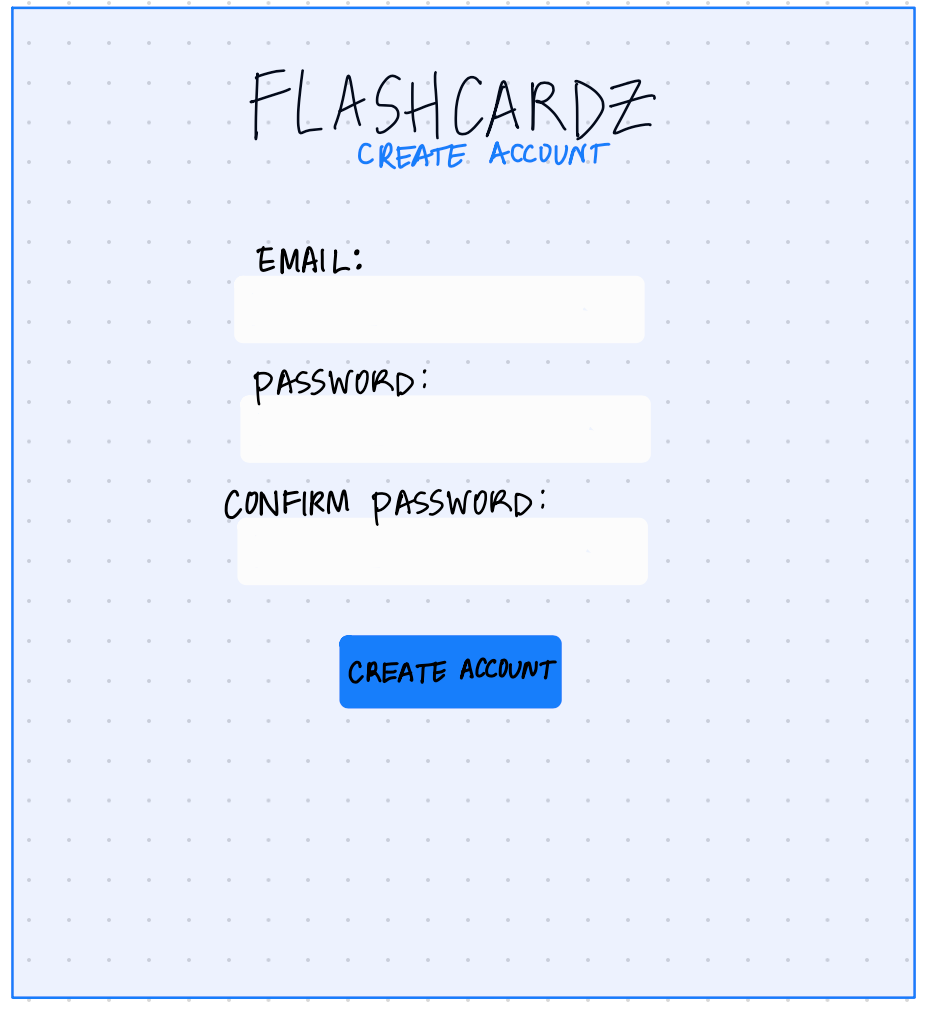 FLASHCARDZ
CREATE ACCOUNT
EMAIL:
PASSWORD:
CONFIRM PASSWORD:
CREATE ACCOUNT